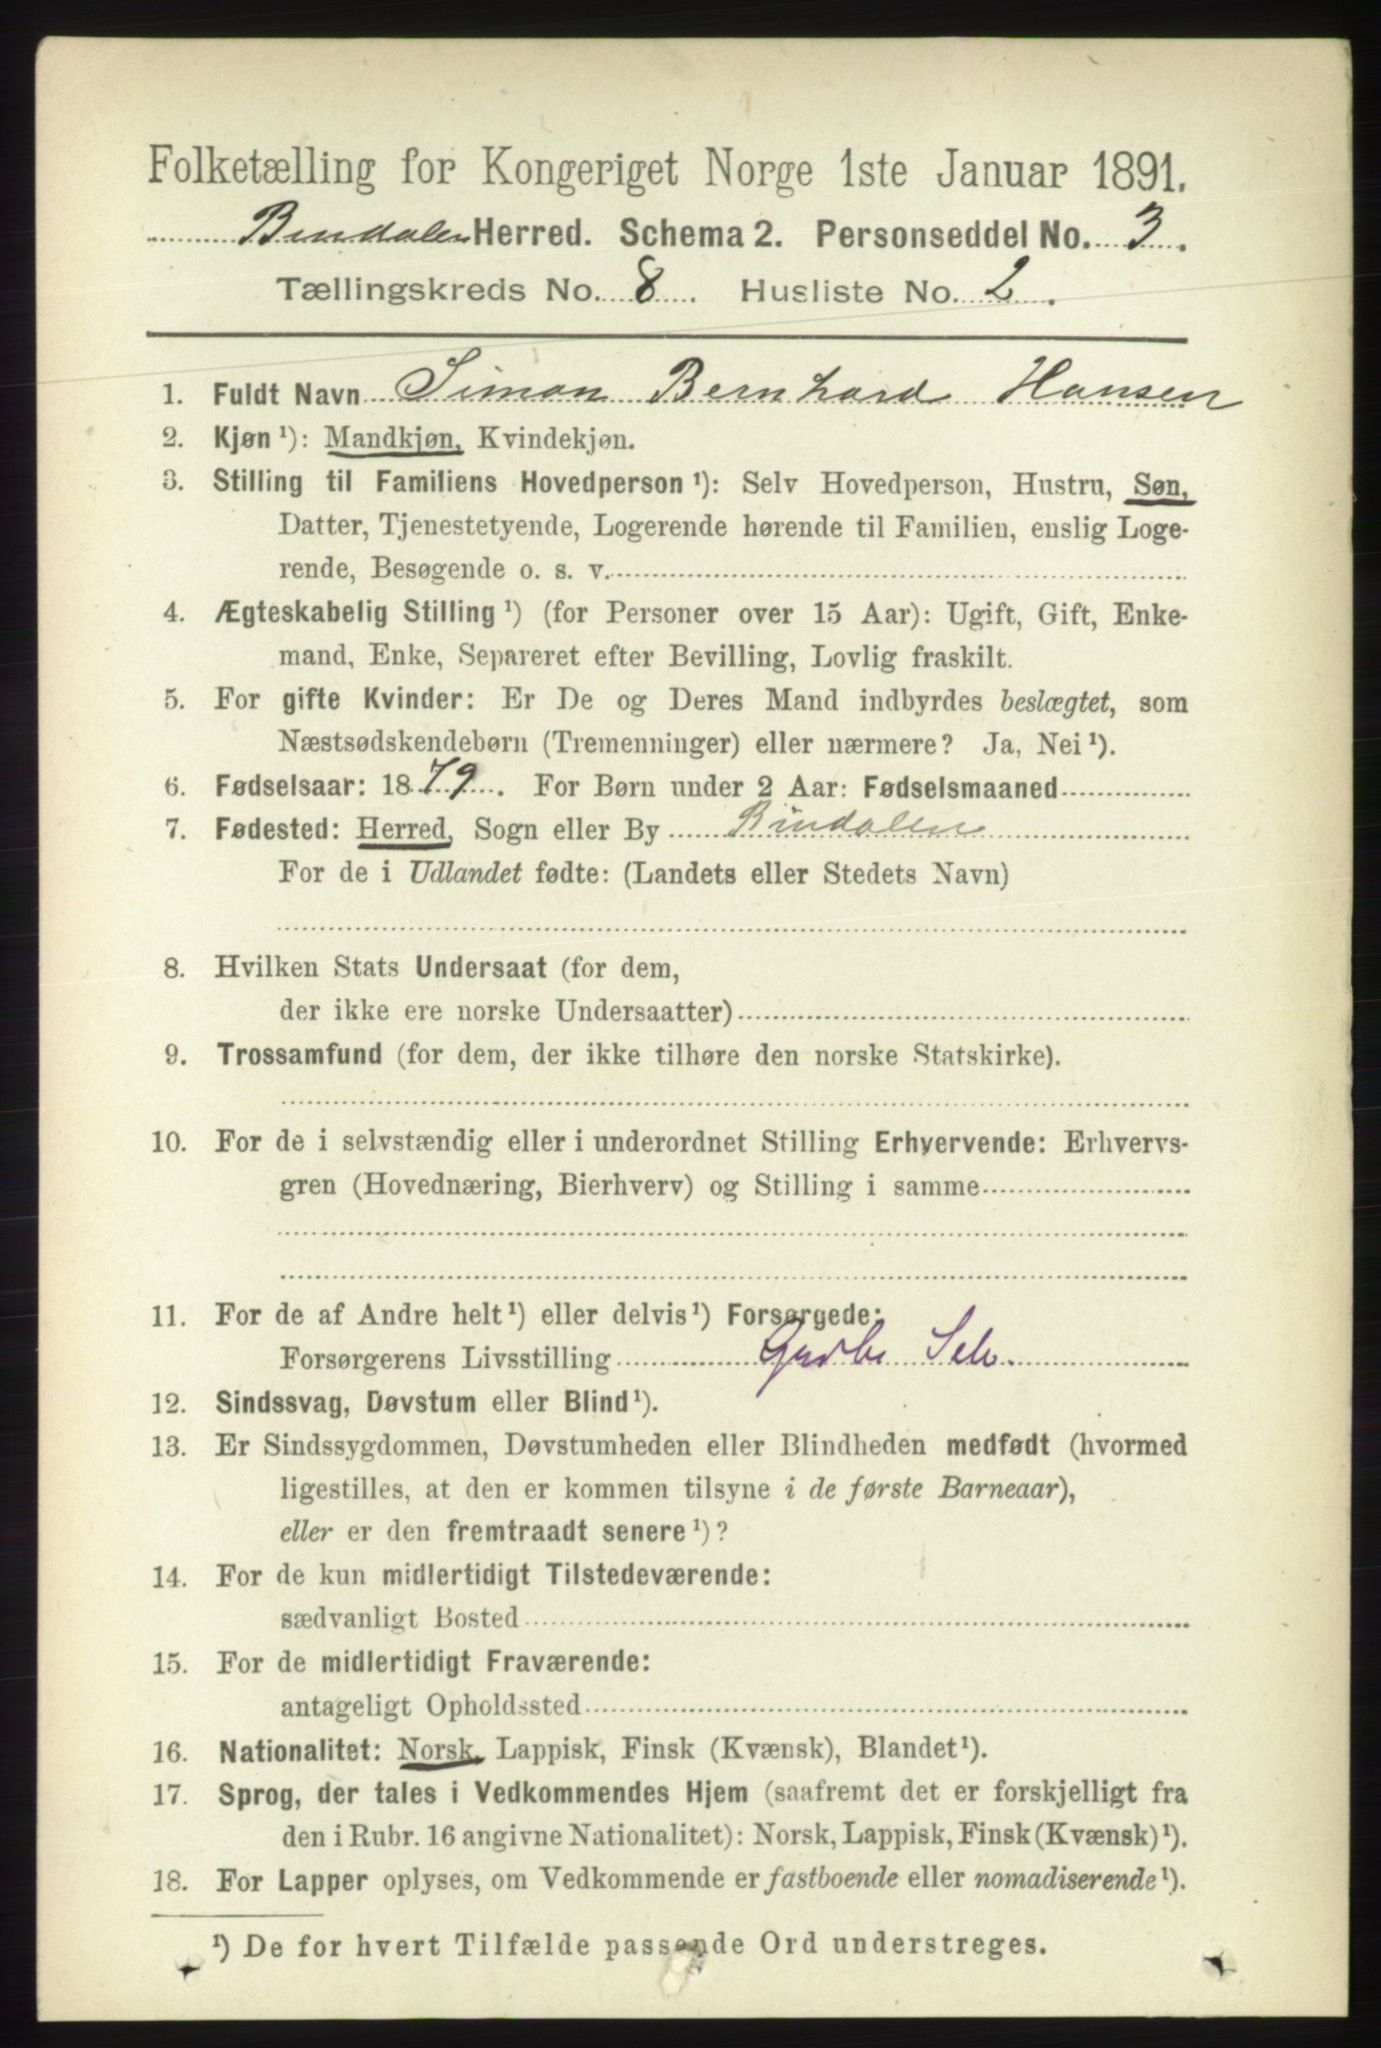 Folketælling for Kongeriget Norge 1ste Januar 1891.
Bindalen Herred. Schema 2. Personseddel No. 3.
Tællingskreds No. 8. Husliste No. 2.
1. Fuldt Navn Simon Bernhard Hansen
2. Kjøn¹): Mandkjøn, Kvindekjøn.
3. Stilling til Familiens Hovedperson¹): Selv Hovedperson, Hustru, Søn,
Datter, Tjenestetyende, Logerende hørende til Familien, enslig Loge-
rende, Besøgende o. s. v.
4. Ægteskabelig Stilling¹) (for Personer over 15 Aar): Ugift, Gift, Enke-
mand, Enke, Separeret efter Bevilling, Lovlig fraskilt.
5. For gifte Kvinder: Er De og Deres Mand indbyrdes beslægtet, som
Næstsødskendebørn (Tremenninger) eller nærmere? Ja, Nei¹).
6. Fødselsaar: 1879. For Børn under 2 Aar: Fødselsmaaned
7. Fødested: Herred, Sogn eller By Bindalen
For de i Udlandet fødte: (Landets eller Stedets Navn)
8. Hvilken Stats Undersaat (for dem,
der ikke ere norske Undersaatter)
9. Trossamfund (for dem, der ikke tilhøre den norske Statskirke).
10. For de i selvstændig eller i underordnet Stilling Erhvervende: Erhvervs-
gren (Hovednæring, Bierhverv) og Stilling i samme
11. For de af Andre helt¹) eller delvis¹) Forsørgede:
Forsørgerens Livsstilling Grdbr Sele.
12. Sindssvag, Døvstum eller Blind¹).
13. Er Sindssygdommen, Døvstumheden eller Blindheden medfødt (hvormed
ligestilles, at den er kommen tilsyne i de første Barneaar),
eller er den fremtraadt senere¹)?
14. For de kun midlertidigt Tilstedeværende:
sædvanligt Bosted
15. For de midlertidigt Fraværende:
antageligt Opholdssted
16. Nationalitet: Norsk, Lappisk, Finsk (Kvænsk), Blandet¹).
17. Sprog, der tales i Vedkommendes Hjem (saafremt det er forskjelligt fra
den i Rubr. 16 angivne Nationalitet): Norsk, Lappisk, Finsk (Kvænsk)¹).
18. For Lapper oplyses, om Vedkommende er fastboende eller nomadiserende¹).
¹) De for hvert Tilfælde passende Ord understreges.